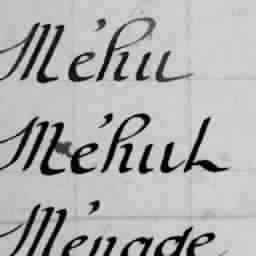 Méhu
Méhul
Ménage